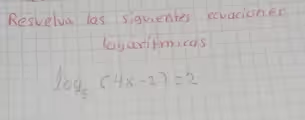 Resuelva las siguientes ecuaciones
logarítmicas
log₅ (4x-2) = 2